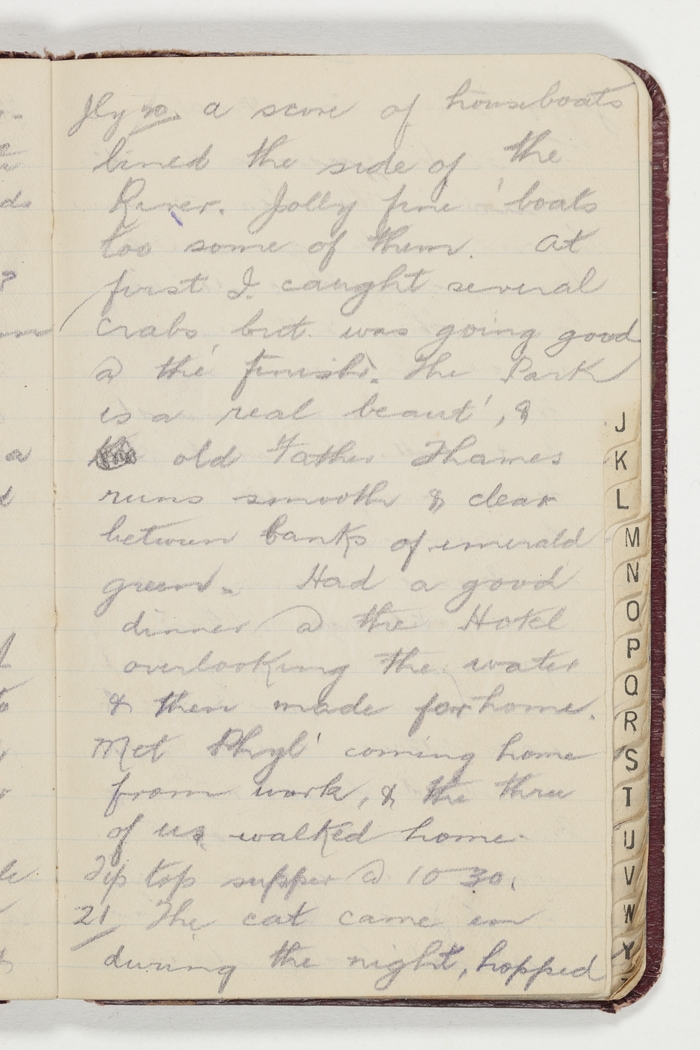 Jly 20. a score of houseboats
lined the side of the
River. Jolly fine 'boats
too some of them. At
first I caught several
crabs but was going good
@ the finish. The Park
is a real beaut', &
old Father Thames
runs smooth & clear
between banks of emerald
green. Had a good
dinner @ the Hotel
overlooking the water
& then made for home.
Met Phyl' coming home
from work, & the three
of us walked home.
Tip top supper @ 10-30.
21 The cat came in
during the night, hopped
J
K
L
M
N
O
P
Q
R
S
T
U
V
W
Y